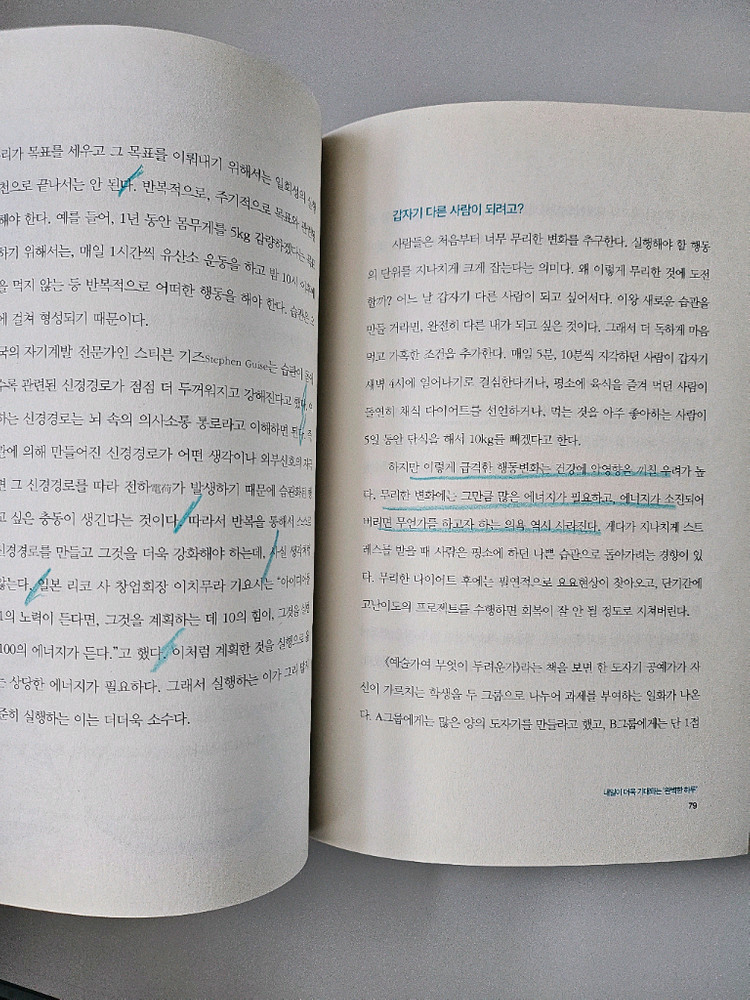 리가 목표를 세우고 그 목표를 이뤄내기 위해서는 일회성의
천으로 끝나서는 안 된다. 반복적으로, 주기적으로 목표와
해야 한다. 예를 들어, 1년 동안 몸무게를 5kg 감량하겠다는
하기 위해서는, 매일 1시간씩 유산소 운동을 하고 밤 10시
을 먹지 않는 등 반복적으로 어떠한 행동을 해야 한다. 습관은
에 걸쳐 형성되기 때문이다.
국의 자기계발 전문가인 스티븐 기즈Stephen Guise는 습관이
수록 관련된 신경경로가 점점 더 두꺼워지고 강해진다고 했다.
하는 신경경로는 뇌 속의 의사소통 통로라고 이해하면 된다. 즉
관에 의해 만들어진 신경경로가 어떤 생각이나 외부신호의
면 그 신경경로를 따라 전하電荷가 발생하기 때문에 습관화된
고 싶은 충동이 생긴다는 것이다. 따라서 반복을 통해서 스스로
신경경로를 만들고 그것을 더욱 강화해야 하는데, 사실
않는다. 일본 리코 사 창업회장 이치무라 기요시는 “아이디어
1의 노력이 든다면, 그것을 계획하는 데 10의 힘이, 그것을
100의 에너지가 든다.”고 했다. 이처럼 계획한 것을 실행으로
는 상당한 에너지가 필요하다. 그래서 실행하는 이가 그리
준히 실행하는 이는 더더욱 소수다.
갑자기 다른 사람이 되려고?
사람들은 처음부터 너무 무리한 변화를 추구한다. 실행해야 할 행동
의 단위를 지나치게 크게 잡는다는 의미다. 왜 이렇게 무리한 것에 도전
할까? 어느 날 갑자기 다른 사람이 되고 싶어서다. 이왕 새로운 습관을
만들 거라면, 완전히 다른 내가 되고 싶은 것이다. 그래서 더 독하게 마음
먹고 가혹한 조건을 추가한다. 매일 5분, 10분씩 지각하던 사람이 갑자기
새벽 4시에 일어나기로 결심한다거나, 평소에 육식을 즐겨 먹던 사람이
돌연히 채식 다이어트를 선언하거나, 먹는 것을 아주 좋아하는 사람이
5일 동안 단식을 해서 10kg를 빼겠다고 한다.
하지만 이렇게 급격한 행동변화는 건강에 악영향을 끼칠 우려가 높
다. 무리한 변화에는 그만큼 많은 에너지가 필요하고, 에너지가 소진되어
버리면 무언가를 하고자 하는 의욕 역시 사라진다. 게다가 지나치게 스트
레스를 받을 때 사람은 평소에 하던 나쁜 습관으로 돌아가려는 경향이 있
다. 무리한 다이어트 후에는 필연적으로 요요현상이 찾아오고, 단기간에
고난이도의 프로젝트를 수행하면 회복이 잘 안 될 정도로 지쳐버린다.
《예술가여 무엇이 두려운가》라는 책을 보면 한 도자기 공예가가 자
신이 가르치는 학생을 두 그룹으로 나누어 과제를 부여하는 일화가 나온
다. A그룹에게는 많은 양의 도자기를 만들라고 했고, B그룹에게는 단 1점
내일이 더욱 기대되는 ‘완벽한 하루’
79